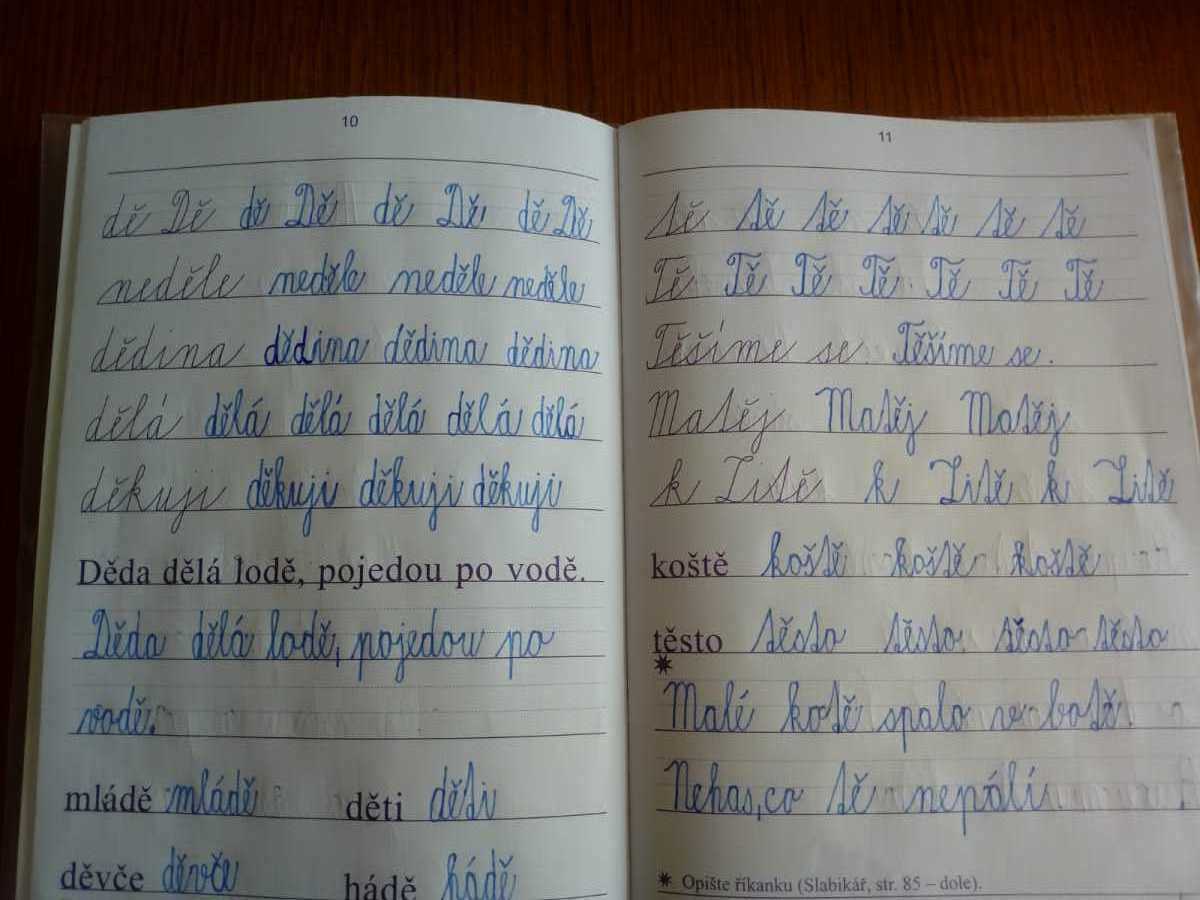 10
dě Dě dě Dě dě Dě dě Dě
neděle neděle neděle neděle
dědina dědina dědina dědina
dělá dělá dělá dělá dělá dělá
děkuji děkuji děkuji děkuji
Děda dělá lodě, pojedou po vodě.
Děda dělá lodě, pojedou po
vodě.
mládě mládě děti děti
děvče děvče hádě hádě
11
tě tě tě tě tě tě tě
Tě Tě Tě Tě Tě Tě Tě
Těšíme se Těšíme se.
Matěj Matěj Matěj
k Title k Title k Title
koště koště koště koště
těsto těsto těsto těsto těsto
Malé kotě spalo v botě.
Nehas, co tě nepálí.
✷ Opište říkanku (Slabikář, str. 85 – dole).